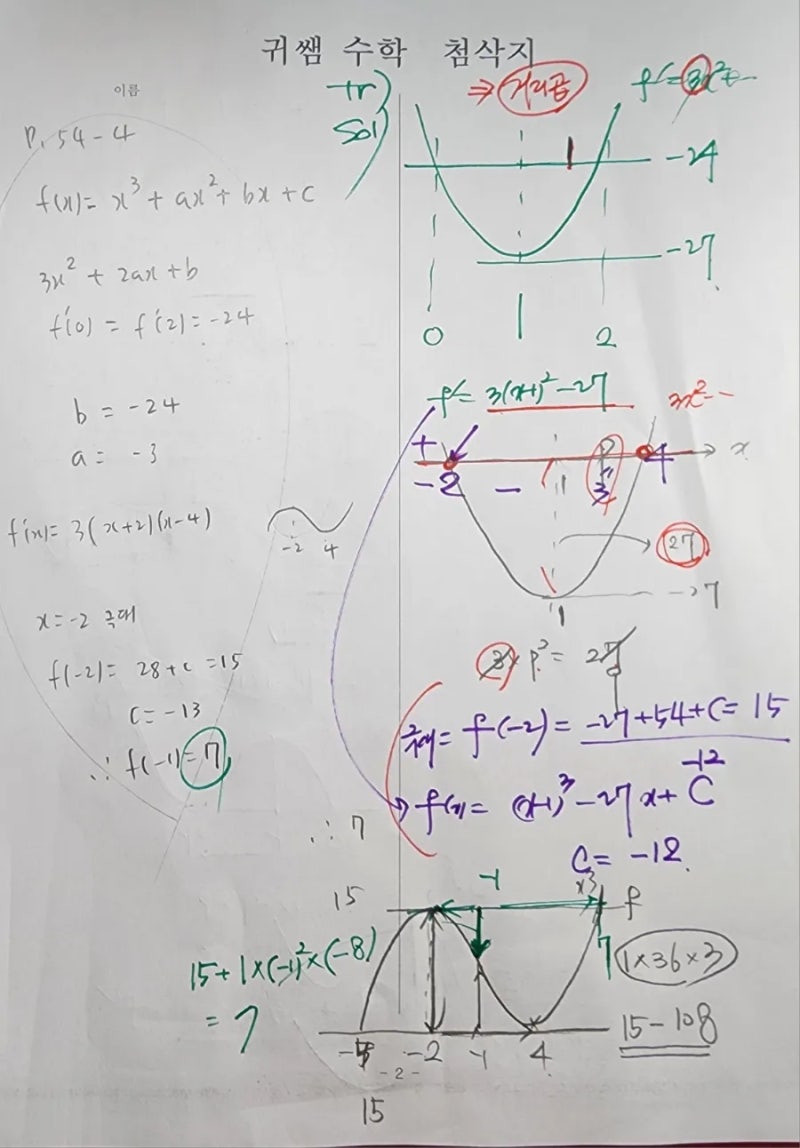 귀쌤 수학 첨삭지
이름
P. 54 - 4
f(x) = x³ + ax² + bx + c
3x² + 2ax + b
f'(0) = f'(2) = -24
b = -24
a = -3
f'(x) = 3(x+2)(x-4)
-2 4
x = -2 극대
f(-2) = 28 + c = 15
c = -13
∴ f(-1) = 7
tr)
sol)
⇒ 거리곱
f' = 3x² + --
-24
-27
0 1 2
f' = 3(x-1)² - 27
3x² --
+ -2 - 1 4 x
27
-27
1
3 × p² = 27
극대 = f(-2) = -27 + 54 + C = 15
f(x) = (x-1)³ - 27x + C
-12
C = -12
∴ 7
15
-1
×3
f
15 + 1 × (-1)² × (-8)
= 7
7
1×36×3
15 - 108
-2 -1 4
- 2 -
15